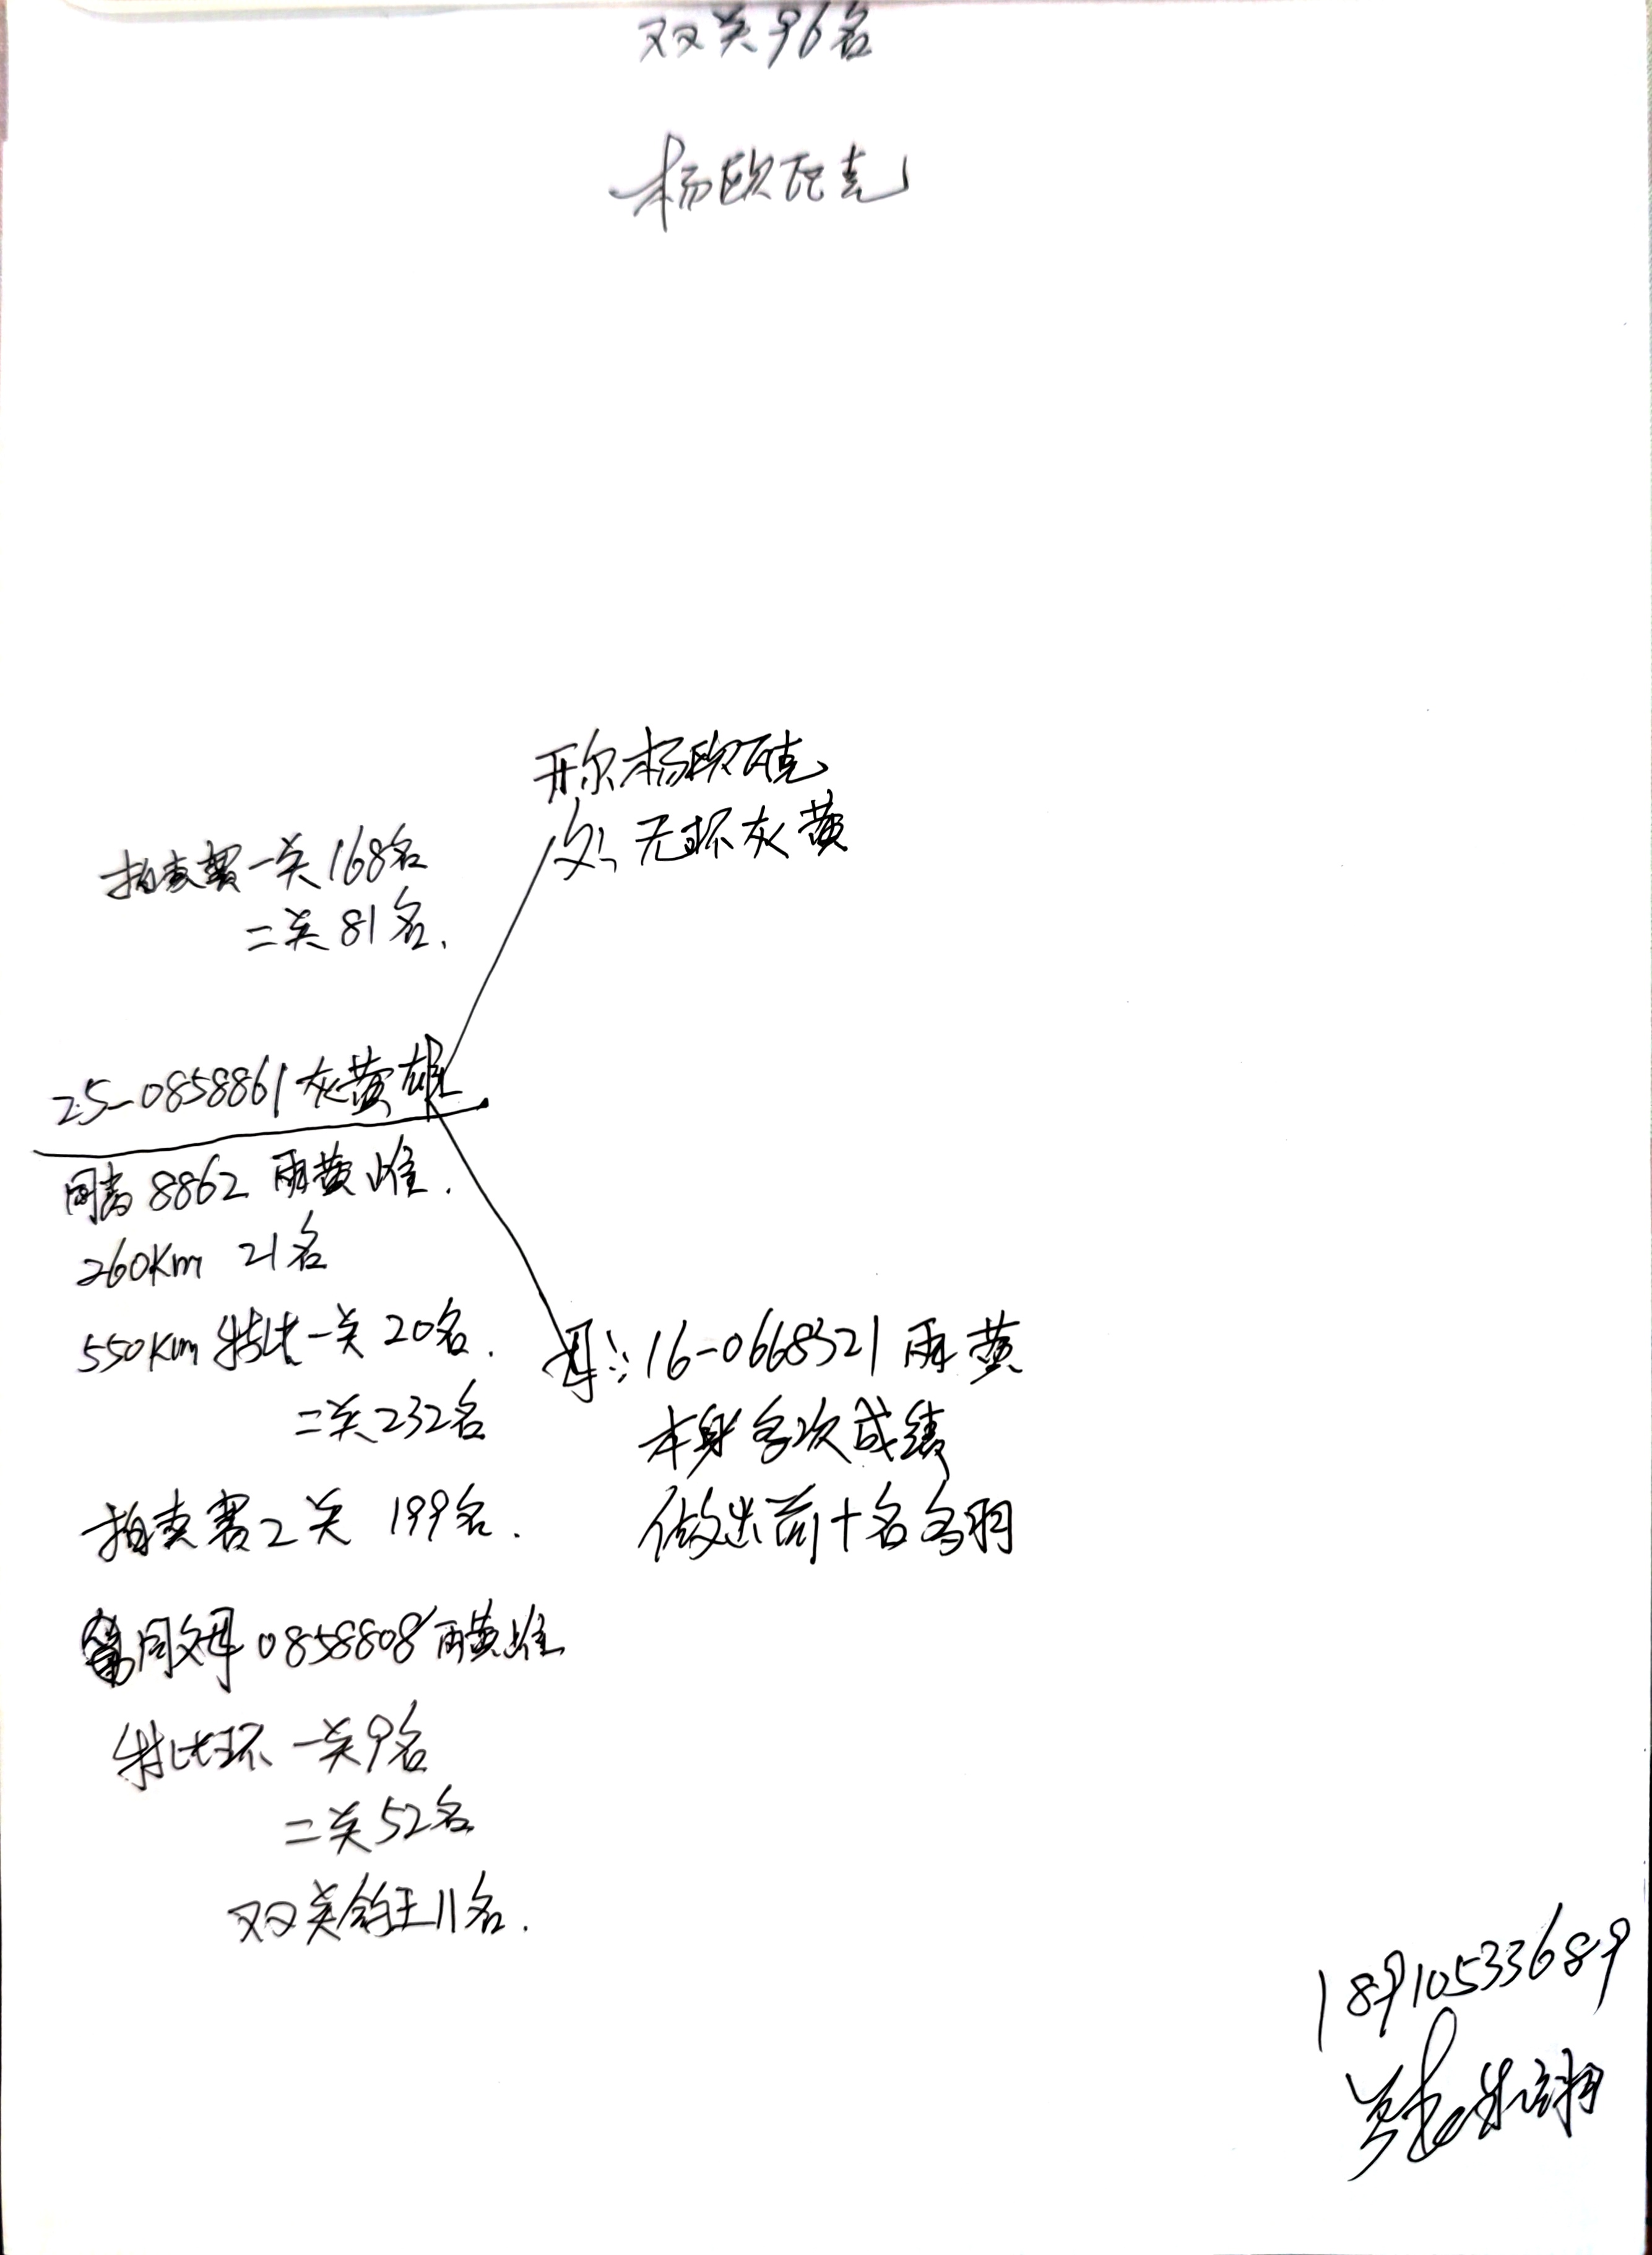 双关96名
杨欧瓦克
开尔杨欧瓦克
父: 无环灰黄
拍卖赛一关168名
二关81名.
25-0858861灰黄雄
同窝8862 雨黄雌.
260Km 21名
550Km 特比一关20名.
二关232名
拍卖赛2关 199名.
同父母0858808雨黄雌
特比环 一关9名
二关52名
双关鸽王11名.
母: 16-0668321 雨黄
本身多次成绩
做出前十名多羽
18910533689